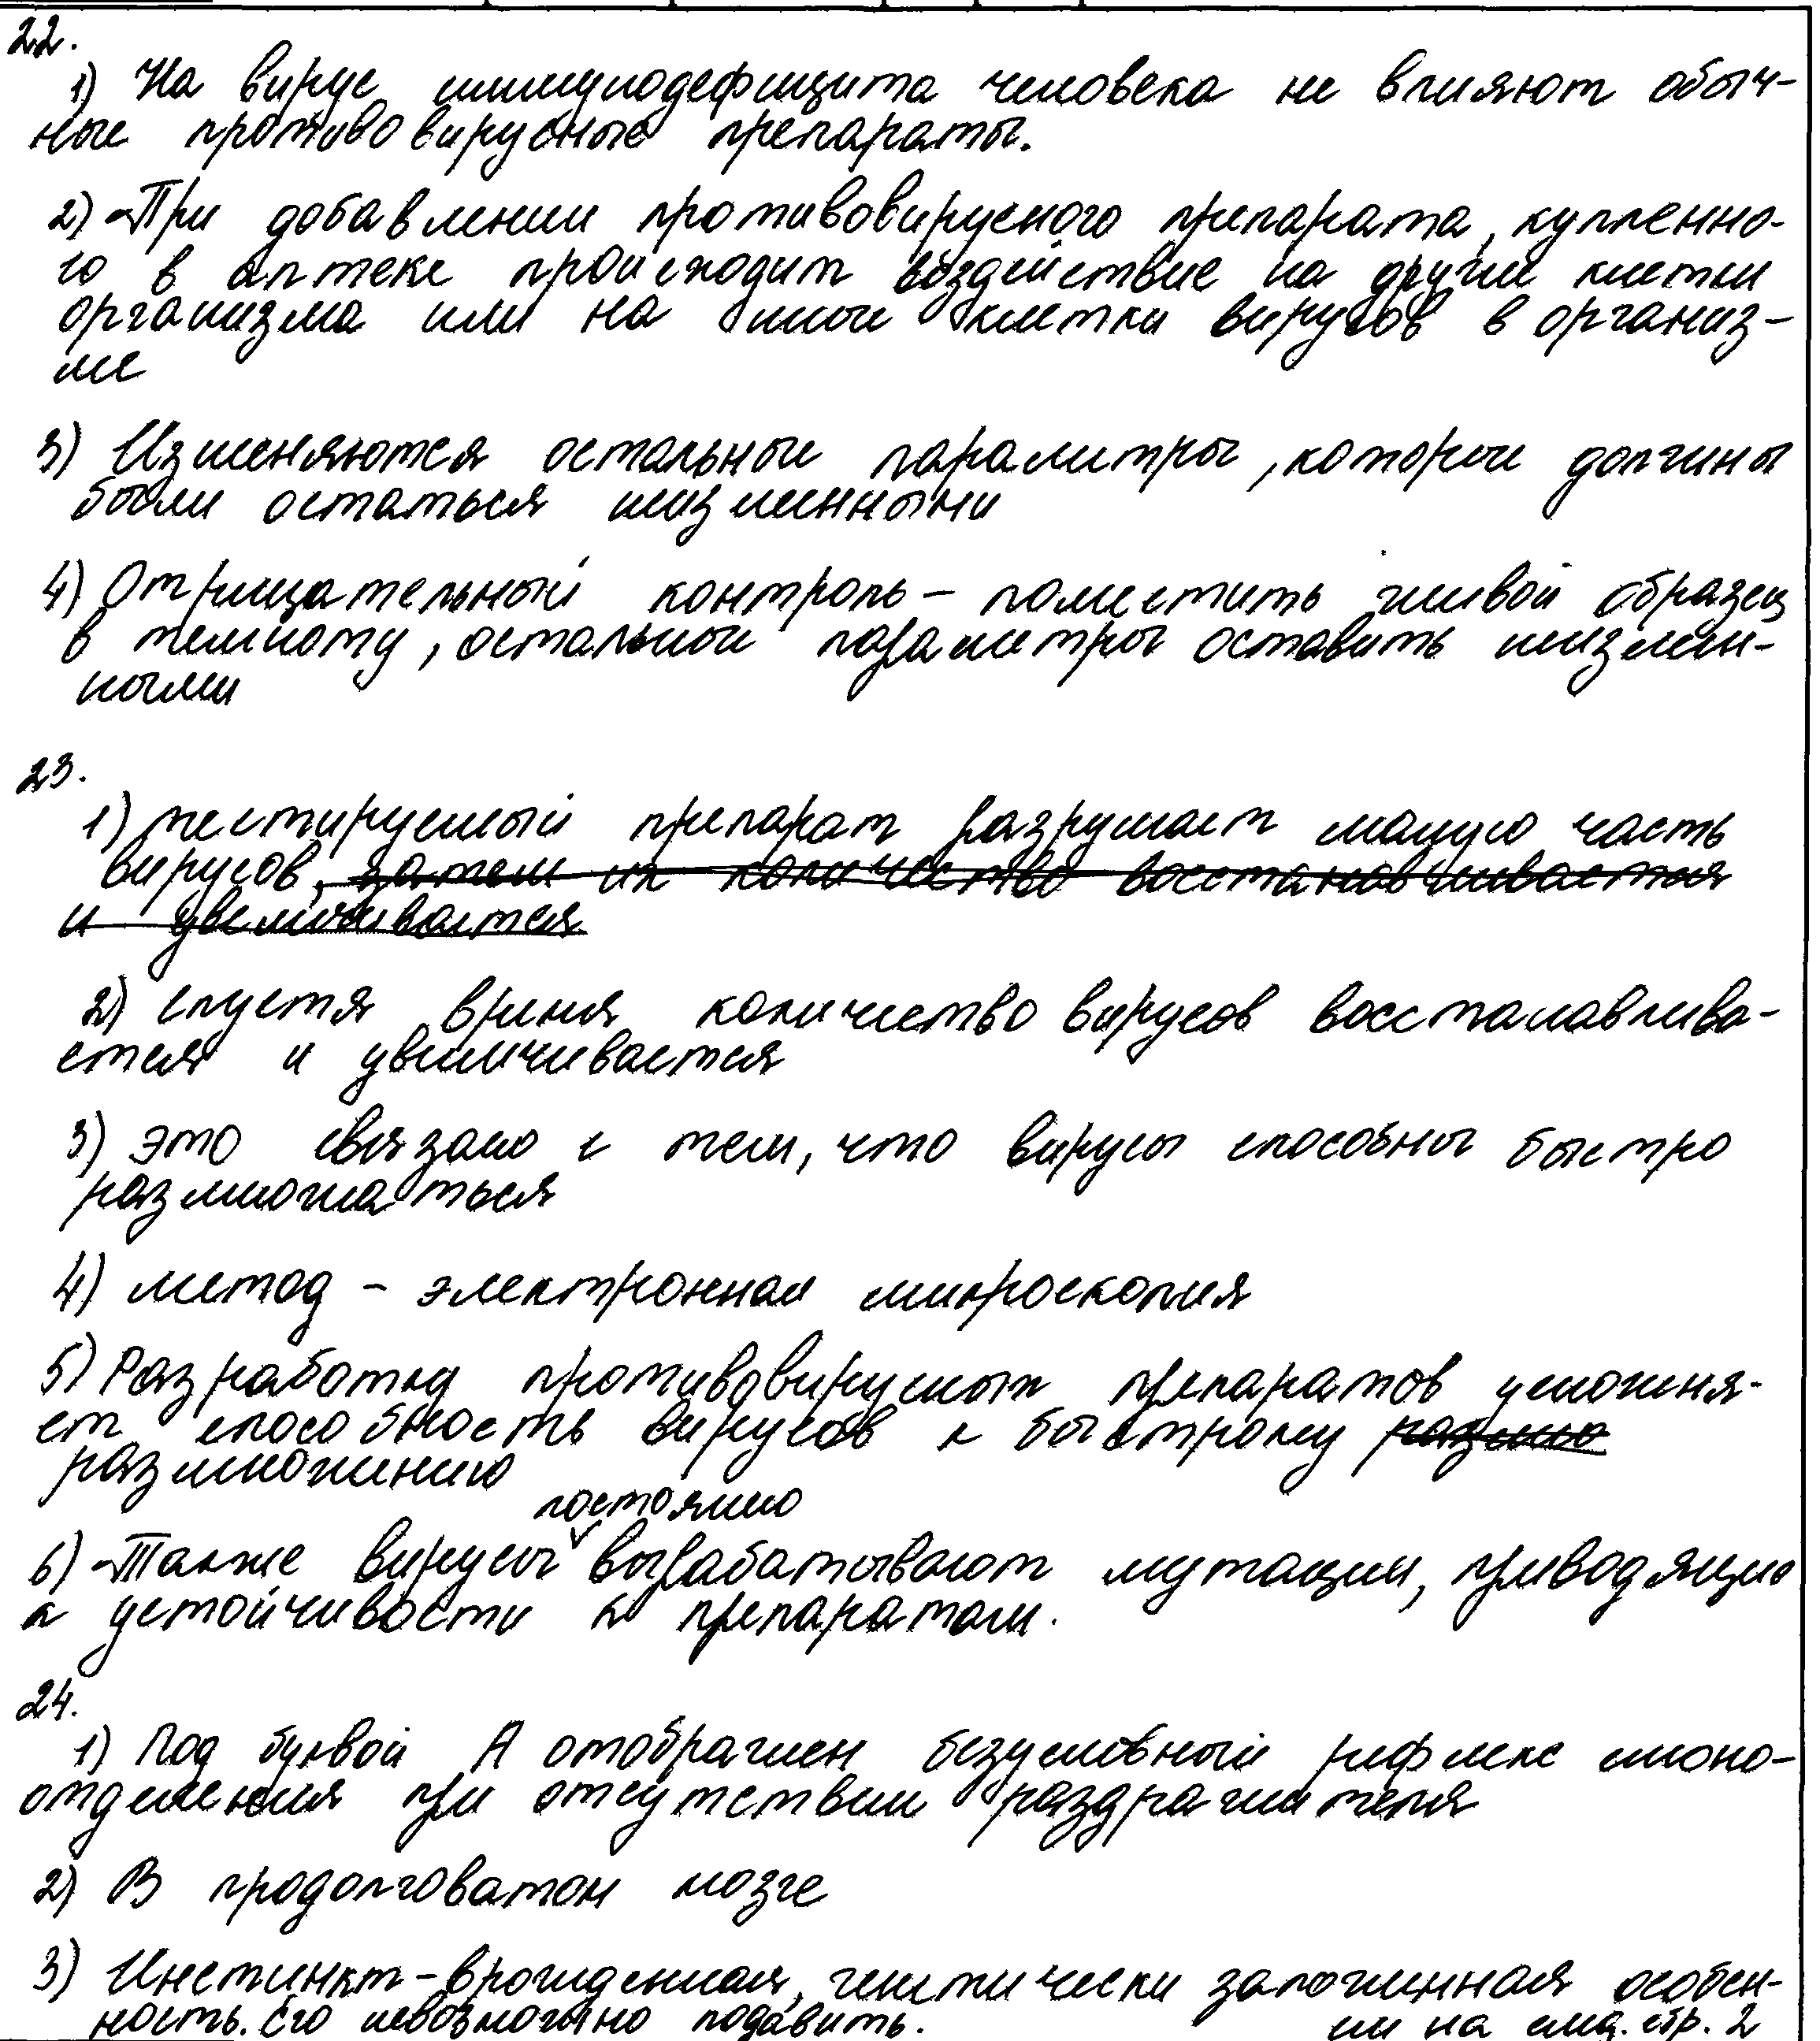 22.
1) На вирус иммунодефицита человека не влияют обыч-
ные противовирусные препараты.
2) При добавлении противовирусного препарата, купленно-
го в аптеке происходит воздействие на другие клетки
организма или на иные клетки вирусов в организ-
ме
3) Изменяются остальные параметры, которые должны
были остаться неизменными
4) Отрицательный контроль – поместить живой образец
в темноту, остальные параметры оставить неизмен-
ными
23.
1) тестируемый препарат разрушает малую часть
вирусов, затем их количество восстанавливается
и увеличивается
2) спустя время количество вирусов восстанавлива-
ется и увеличивается
3) это связано с тем, что вирусы способны быстро
размножаться
4) метод – электронная микроскопия
5) Разработку противовирусных препаратов усложня-
ет способность вирусов к быстрому размно
размножению
постоянно
6) Также вирусы вырабатывают мутации, приводящие
к устойчивости к препаратам.
24.
1) Под буквой А отображен безусловный рефлекс слюно-
отделения при отсутствии раздражителя
2) В продолговатом мозге
3) Инстинкт – врожденная, генетически заложенная особен-
ность. Его невозможно подавить. см на след. стр. 2